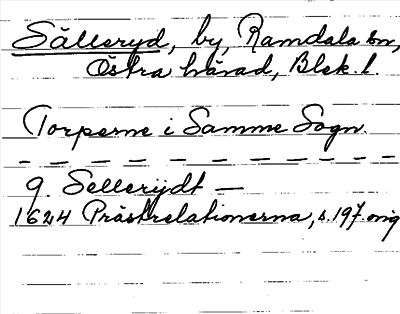 Sälleryd, by, Ramdala sn,
Östra härad, Blek. l.
Torperne i Samme Sogn.
9. Sellerijdt —
1624 Prästrelationerna, s. 197. orig